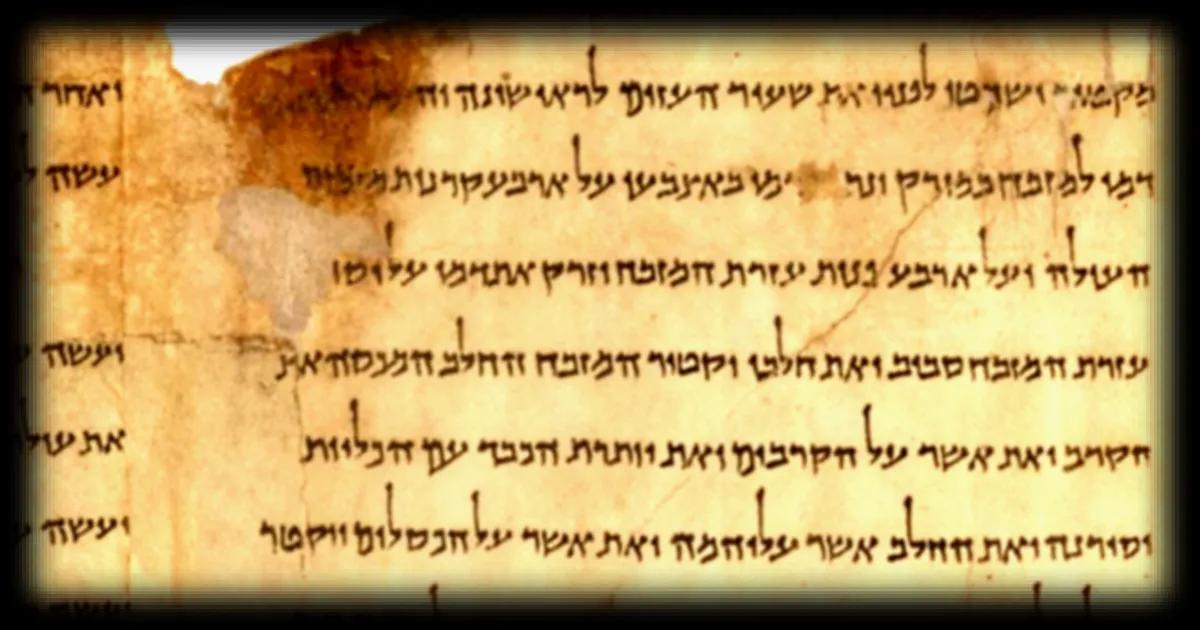 ושחטו לפניו את שעיר העזים לראישונה
דמו למזבח במזרק באצבעו על ארבע קרנות
העולה ועל ארבע פנות עזרת המזבח וזרק את דמו על יסוד
עזרת המזבח סביב ואת חלבו יקטיר המזבח החלב המכסה את
הקרב ואת אשר על הקרבים ואת יותרת הכבד עם הכליות
יסירנה ואת החלב אשר עליהמה ואת אשר על הכסלים ויקטר
ואחר
עשה
ועשה
את
ועשה